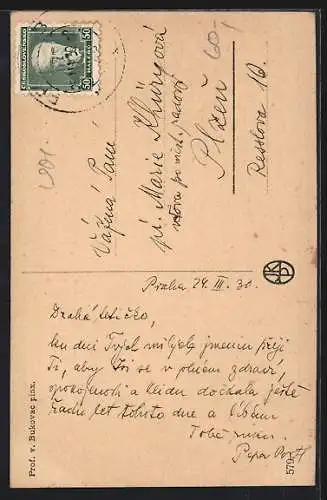 ČESKOSLOVENSKO
50 HALÉŘŮ 50
Vážená Paní
pí. Marie Khürgová
vdova po mist. radovi
Plzeň
Resslova 16.
60-
Praha 24. III. 30.
Drahá tetičko,
ku dni Tvých milých jmenin přeji
Ti, aby Jsi se v plném zdraví,
spokojenosti a klidu dočkala ještě
řadu let tohoto dne a líbám
Tobě ruku.
Pepa
Prof. v. Bukovac pinx.
579